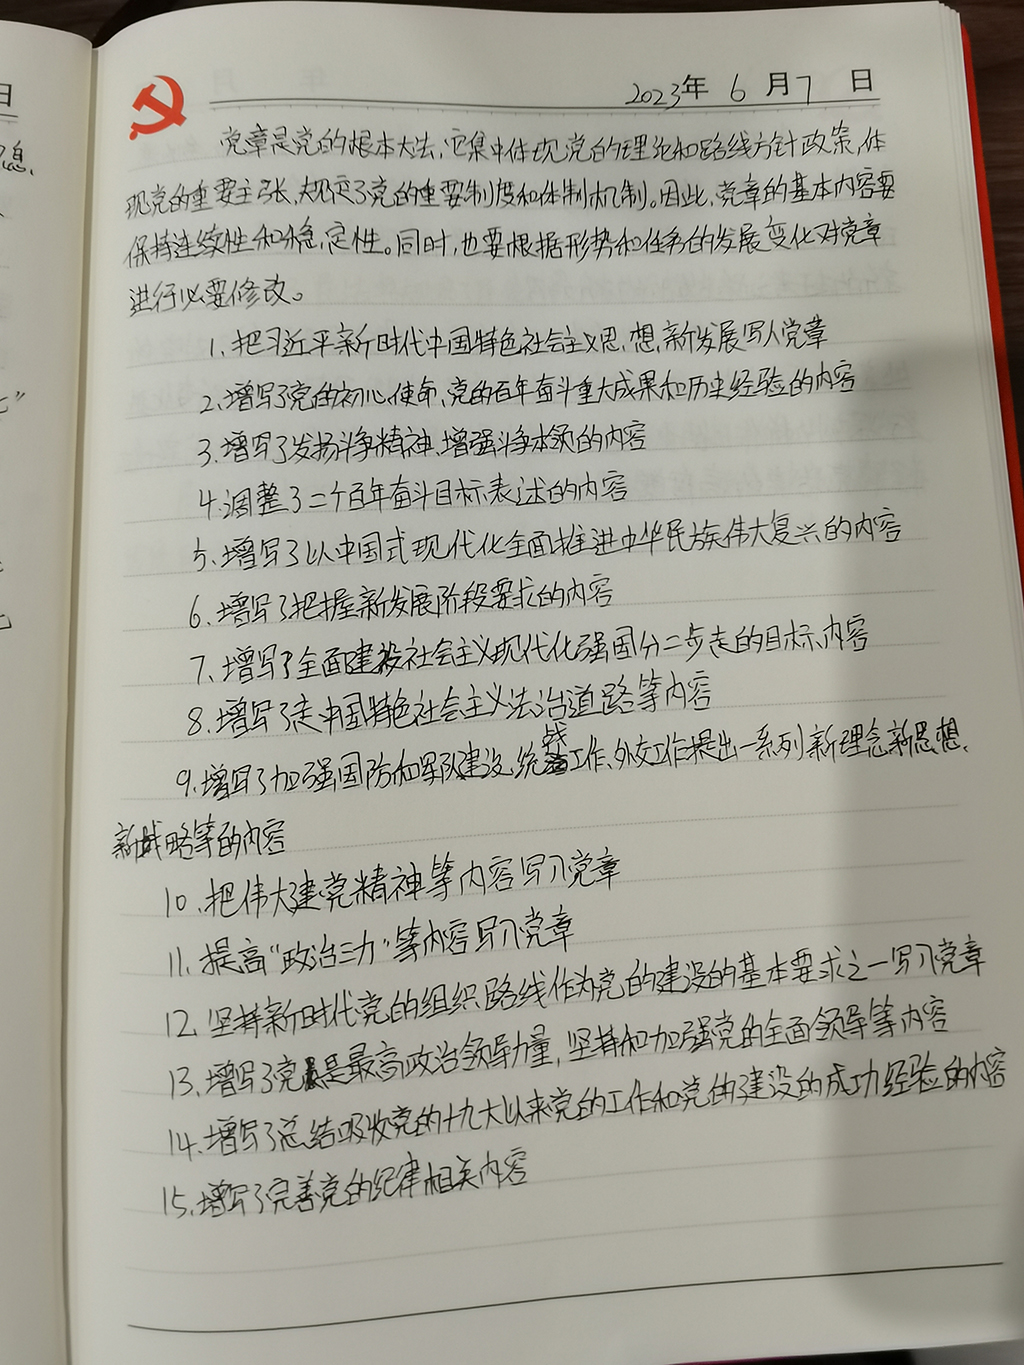 2023年 6 月 7 日
党章是党的根本大法,它集中体现党的理论和路线方针政策,体
现党的重要主张,规定了党的重要制度和体制机制。因此,党章的基本内容要
保持连续性和稳定性。同时,也要根据形势和任务的发展变化对党章
进行必要修改。
1.把习近平新时代中国特色社会主义思想新发展写入党章
2.增写了党的初心使命、党的百年奋斗重大成果和历史经验的内容
3.增写了发扬斗争精神、增强斗争本领的内容
4.调整了二个百年奋斗目标表述的内容
5.增写了以中国式现代化全面推进中华民族伟大复兴的内容
6.增写了把握新发展阶段要求的内容
7.增写了全面建设社会主义现代化强国分二步走的目标内容
8.增写了走中国特色社会主义法治道路等内容
9.增写了加强国防和军队建设、统战工作、外交工作提出一系列新理念新思想、
新战略等的内容
10.把伟大建党精神等内容写入党章
11.提高“政治三力”等内容写入党章
12.坚持新时代党的组织路线作为党的建设的基本要求之一写入党章
13.增写了党是最高政治领导力量,坚持和加强党的全面领导等内容
14.增写了总结吸收党的十九大以来党的工作和党的建设的成功经验的内容
15.增写了完善党的纪律相关内容
日
息、
”